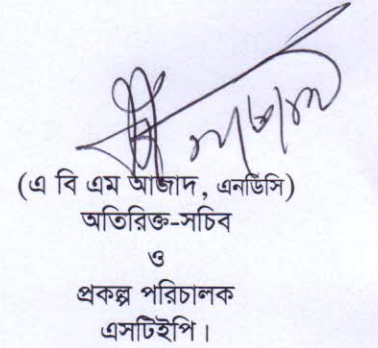 (এ বি এম আজাদ, এনডিসি)
অতিরিক্ত-সচিব
ও
প্রকল্প পরিচালক
এসটিইপি।